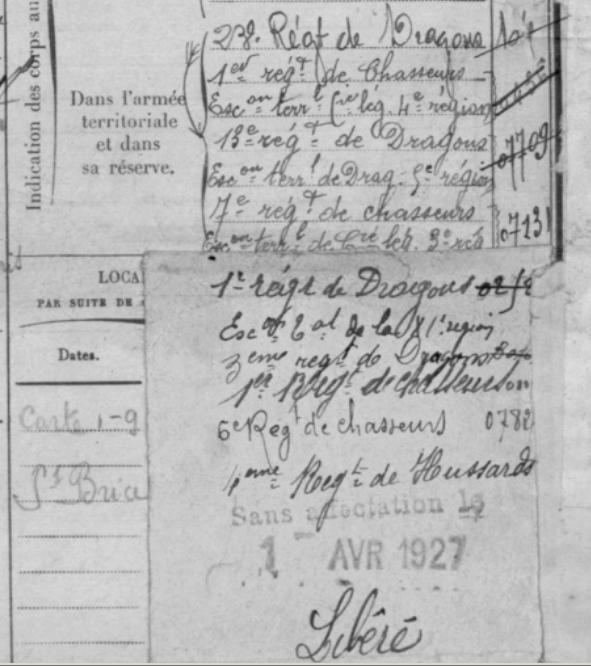 Indication des corps au
Dans l'armée
territoriale
et dans
sa réserve.
23e. Régt de Dragons
1er régt de Chasseurs
Escon terrl Cie lég. 4e région
13e régt de Dragons 0709
Escon terrl de Drag. 5e région
7e régt de chasseurs 0713
Escon terrl de Cie lég. 3e rég
LOCA
PAR SUITE DE
Dates.
Carte 1-9
St Brice
1er régt de Dragons
Escon de la XIe region
3eme regt de Dragons
1er Regt de chasseurs
6e Regt de chasseurs 0782
4eme Regt de Hussards
Sans affectation le
1 AVR 1927
Libéré